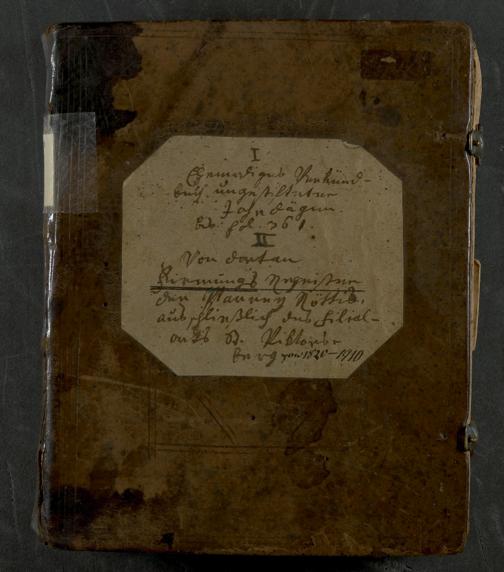 I
Ehemaliges Verkünd-
buch ungestifteter
Jahrtägen
bis fol. 361.
II
Von dortan
Firmungs Register
der Pfarrey Röthis,
ausschließlich des Filial-
orts St. Viktors-
berg von 1826–1910